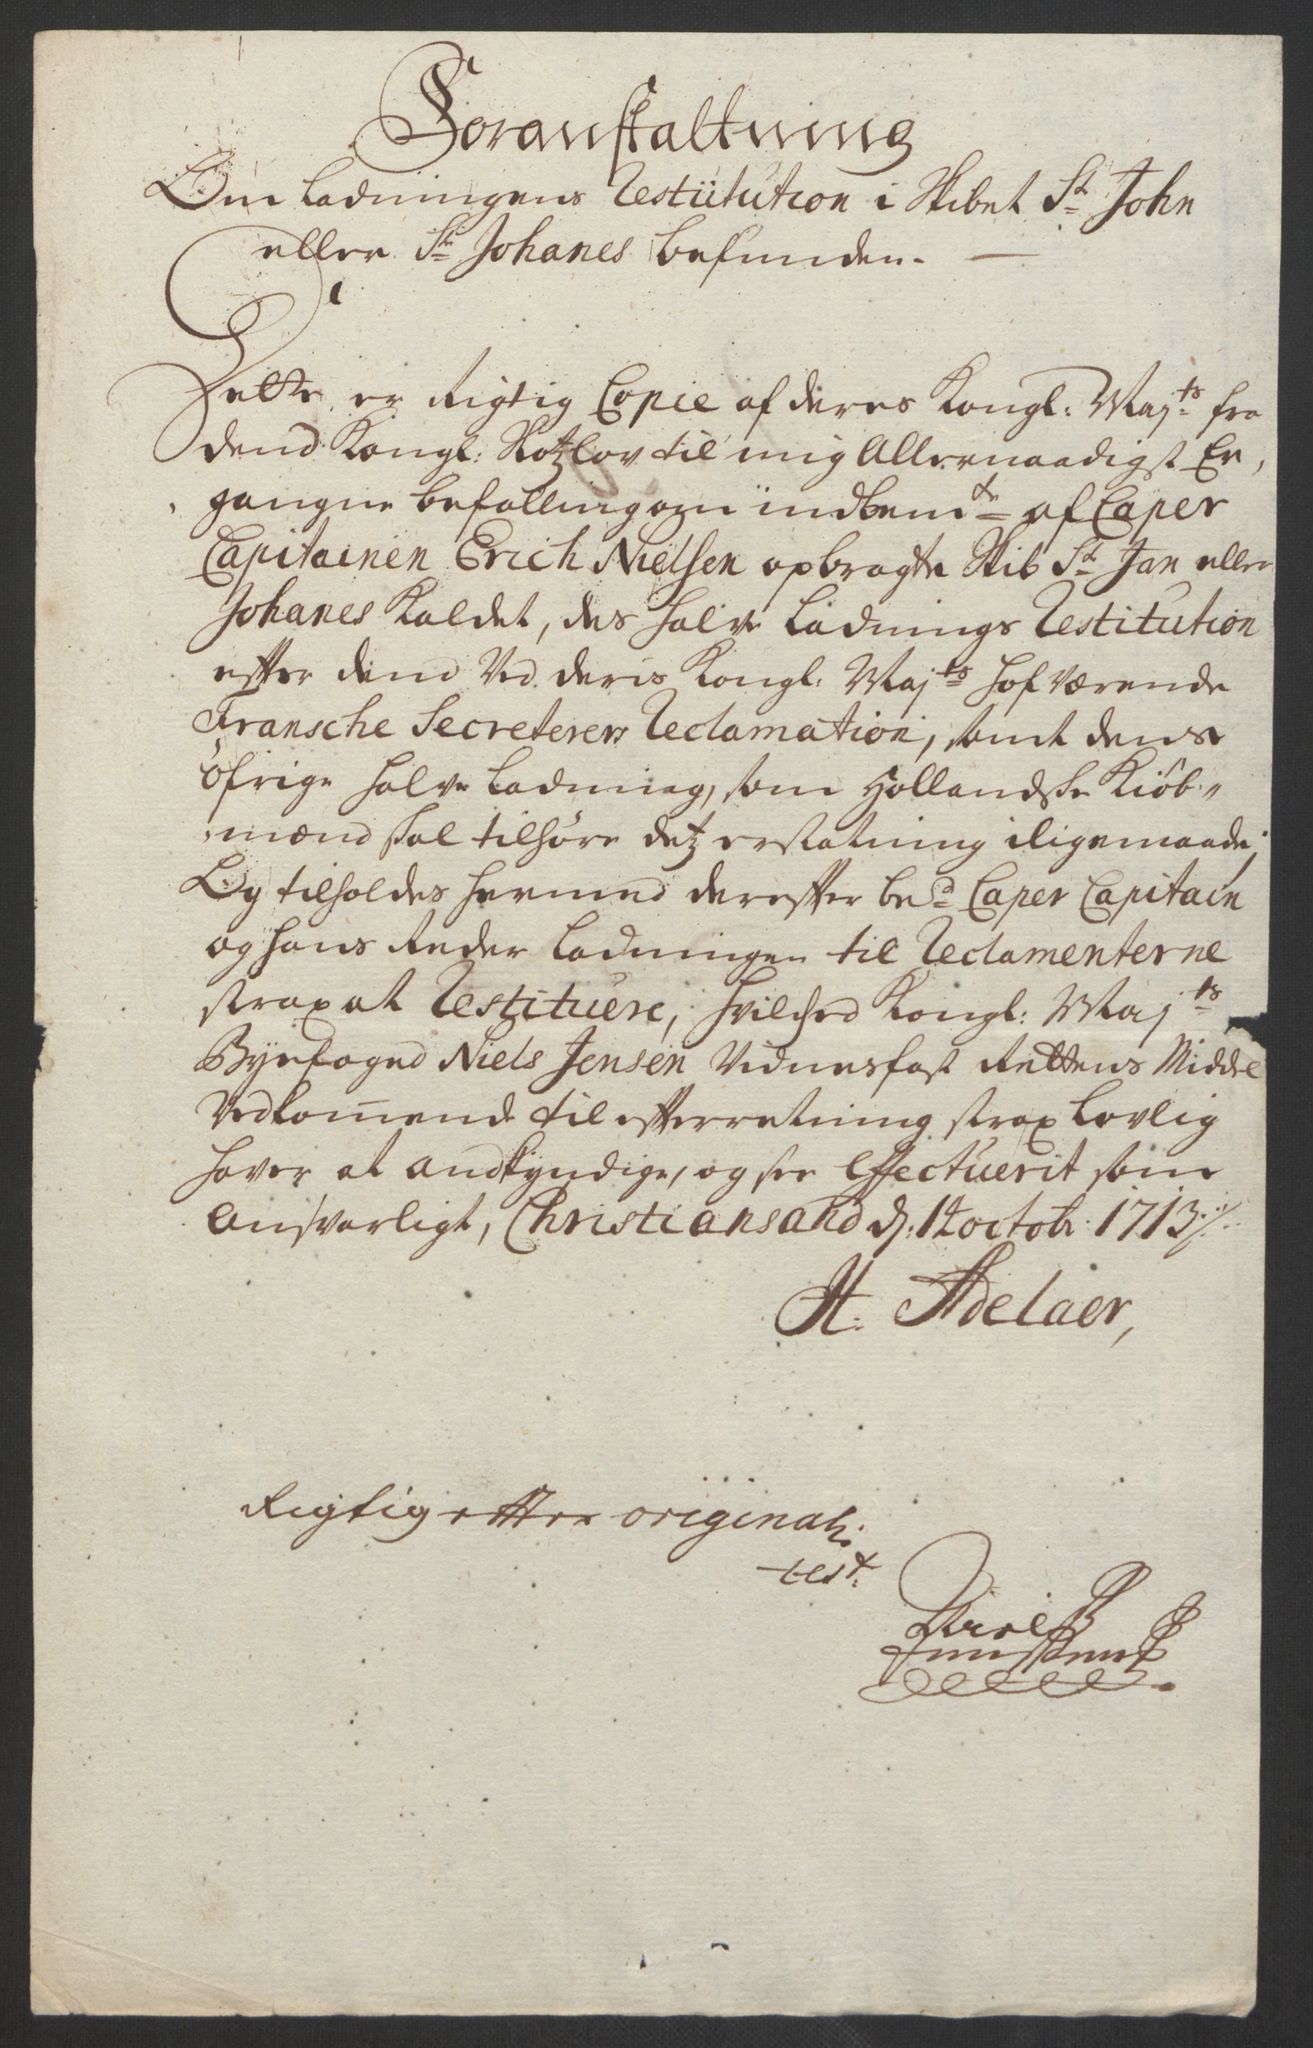 Foranstaltning
Om ladningens Restitution i Skibet St John
eller St Johanes befunden.
Dette er Rigtig Copie af deres Kongl: Majts fra
dend Kongl: Slotzlov til mig Allernaadigst Er,
gangne befalling om indbemte af Caper
Capitainen Erich Nielsen opbragte Skib St Jan eller
Johanes Kaldet, des halve Ladnings Restitution
efter dend Ved deris Kongl: Majts hof værende
Fransche Secreterers Reclamation, samt dens
öfrige halve Ladning, som Hollandske Kiöb-
mænd skal tilhöre detz erstatning iligemaade;
Og tilholdes hermed derefter bed Caper Capitain
og hans Reder Ladningen til Reclamenterne
strax at Restituere, hvilched Kongl: Majts
Byefoged Niels Jensen Vidnesfast Rettens Middel
Vedkommende til efterretning strax lovlig
haver at andkyndige, og see Effectuerit som
Ansvarligt, Christiansand d: 14 octobr: 1713
H. Adelaer,
Rigtig efter originali
test.